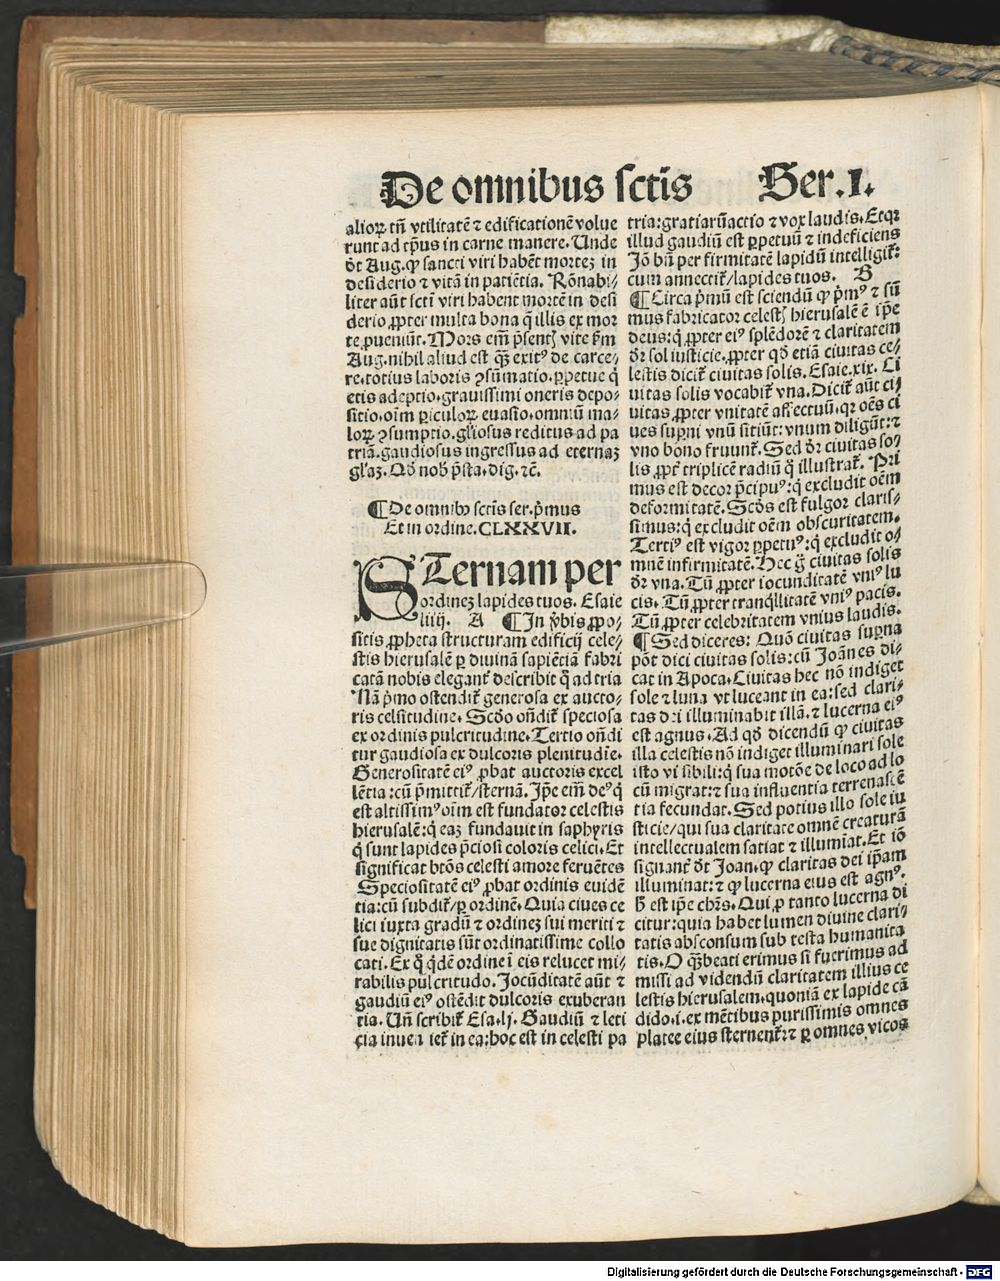 De omnibus sctis̄ Ser. I.
alioꝝ tn̄ vtilitatē ⁊ edificationē volue
runt ad tp̄us in carne manere. Unde
dt̄ Aug. ꝙ sancti viri habēt mortez in
desiderio ⁊ vitā in patiētia. Rōnabi⸗
liter aūt sctī viri habent mortē in desi
derio ꝓpter multa bona q̄ illis ex mor
te ꝓueniūt. Mors em̄ p̄sentꝭ vite ẜm
Aug. nihil aliud est qꝫ exitꝰ de carce⸗
re. totius laboris ꝯsūmatio. ꝑpetue q̄
etis adeptio. grauissimi oneris depo⸗
sitio. oīm ꝑiculoꝝ euasio. omniū ma⸗
loꝝ ꝯsumptio. gl̄iosus reditus ad pa
triā. gaudiosus ingressus ad eternaꝫ
gl̄iaꝫ. Qd̄ nob̄ p̄sta. dig. ⁊c̄.
¶ De omnibꝰ sctis ser. p̄mus
Et in ordine. CLXXVII.
STernam per
ordineꝫ lapides tuos. Esaie
liiij. A ¶ In v̄bis ꝓpo⸗
sitis ꝓpheta structuram edificij cele⸗
stis hierusalē ꝑ diuinā sapiētiā fabri
catā nobis elegant̄ describit q̄ ad tria
Nā p̄mo ostendit̄ generosa ex aucto⸗
ris celsitudine. Scd̄o on̄dit̄ speciosa
ex ordinis pulcritudine. Tertio on̄di
tur gaudiosa ex dulcoris plenitudīe.
Generositatē eiꝰ ꝓbat auctoris excel
lētia: cū p̄mittit̄/sternā. Ip̄e em̄ deꝰ q̄
est altissimꝰ oīm est fundator celestis
hierusalē: q̄ eaꝫ fundauit in saphyris
q̄ sunt lapides p̄ciosi coloris celici. Et
significat btōs celesti amore feruētes
Speciositatē eiꝰ ꝓbat ordinis euidē
tia: cū subdit̄/ꝑ ordinē. Quia ciues ce
lici iuxta gradū ⁊ ordineꝫ sui meriti ⁊
sue dignitatis sūt ordinatissime collo
cati. Ex q̄ qd̄ē ordine ī eis relucet mi⸗
rabilis pulcritudo. Jocūditatē aūt ⁊
gaudiū eiꝰ ostēdit dulcoris exuberan
tia. Un̄ scribit̄ Esa. lj. Gaudiū ⁊ leti
cia inueniet̄ in ea: hoc est in celesti pa
tria: gratiarūactio ⁊ vox laudis. Etqꝛ
illud gaudiū est ꝑpetuū ⁊ indeficiens
Jō bn̄ per firmitatē lapidū intelligit̄:
cum annectit̄/lapides tuos. B
¶ Circa p̄mū est sciendū ꝙ p̄mꝰ ⁊ sū
mus fabricator celestꝭ hierusalē ē ip̄e
deus: q̄ ꝓpter eiꝰ splēdorē ⁊ claritatem
dr̄ sol iusticie. ꝓpter qd̄ etiā ciuitas ce⸗
lestis dicit̄ ciuitas solis. Esaie. xix. Ci
uitas solis vocabit̄ vna. Dicit̄ aūt ci⸗
uitas ꝓpter vnitatē affectuū. qꝛ oēs ci
ues sup̄ni vnū sitiūt: vnum diligūt: ⁊
vno bono fruunt̄. Sed dr̄ ciuitas so⸗
lis ꝓpt̄ triplicē radiū q̄ illustrat̄. Pri
mus est decor p̄cipuꝰ: q̄ excludit oēm
deformitatē. Scd̄s est fulgor claris⸗
simus: q̄ excludit oēm obscuritatem.
Tertiꝰ est vigor ꝑpetuꝰ: q̄ excludit o⸗
mnē infirmitatē. Hec g̈ ciuitas solis
dr̄ vna. Tū ꝓpter iocunditatē vniꝰ lu
cis. Tū ꝓpter tranq̄llitatē vniꝰ pacis.
Tū ꝓpter celebritatem vnius laudis.
¶ Sed diceres: Quō ciuitas sup̄na
pōt dici ciuitas solis: cū Joānes di⸗
cat in Apoca. Ciuitas hec nō indiget
sole ⁊ luna vt luceant in ea: sed clari⸗
tas dei illuminabit illā. ⁊ lucerna eiꝰ
est agnus. Ad qd̄ dicendū ꝙ ciuitas
illa celestis nō indiget illuminari sole
isto visibili: q̄ sua motōe de loco ad lo
cū migrat: ⁊ sua influentia terrenascē
tia fecundat. Sed potius illo sole iu
sticie/qui sua claritate omnē creaturā
intellectualem satiat ⁊ illumīat. Et iō
signant̄ dt̄ Joan. ꝙ claritas dei ip̄am
illuminat: ⁊ ꝙ lucerna eius est agnꝰ.
h̄ est ip̄e chr̄s. Qui ꝓ tanto lucerna di
citur: quia habet lumen diuine clari⸗
tatis absconsum sub testa humanita
tis. O qꝫbeati erimus si fuerimus ad
missi ad videndū claritatem illius ce
lestis hierusalem. quoniā ex lapide cā
dido. i. ex mētibus purissimis omnes
platee eius sternent̄: ⁊ ꝑ omnes vicos
Digitalisierung gefördert durch die Deutsche Forschungsgemeinschaft - DFG